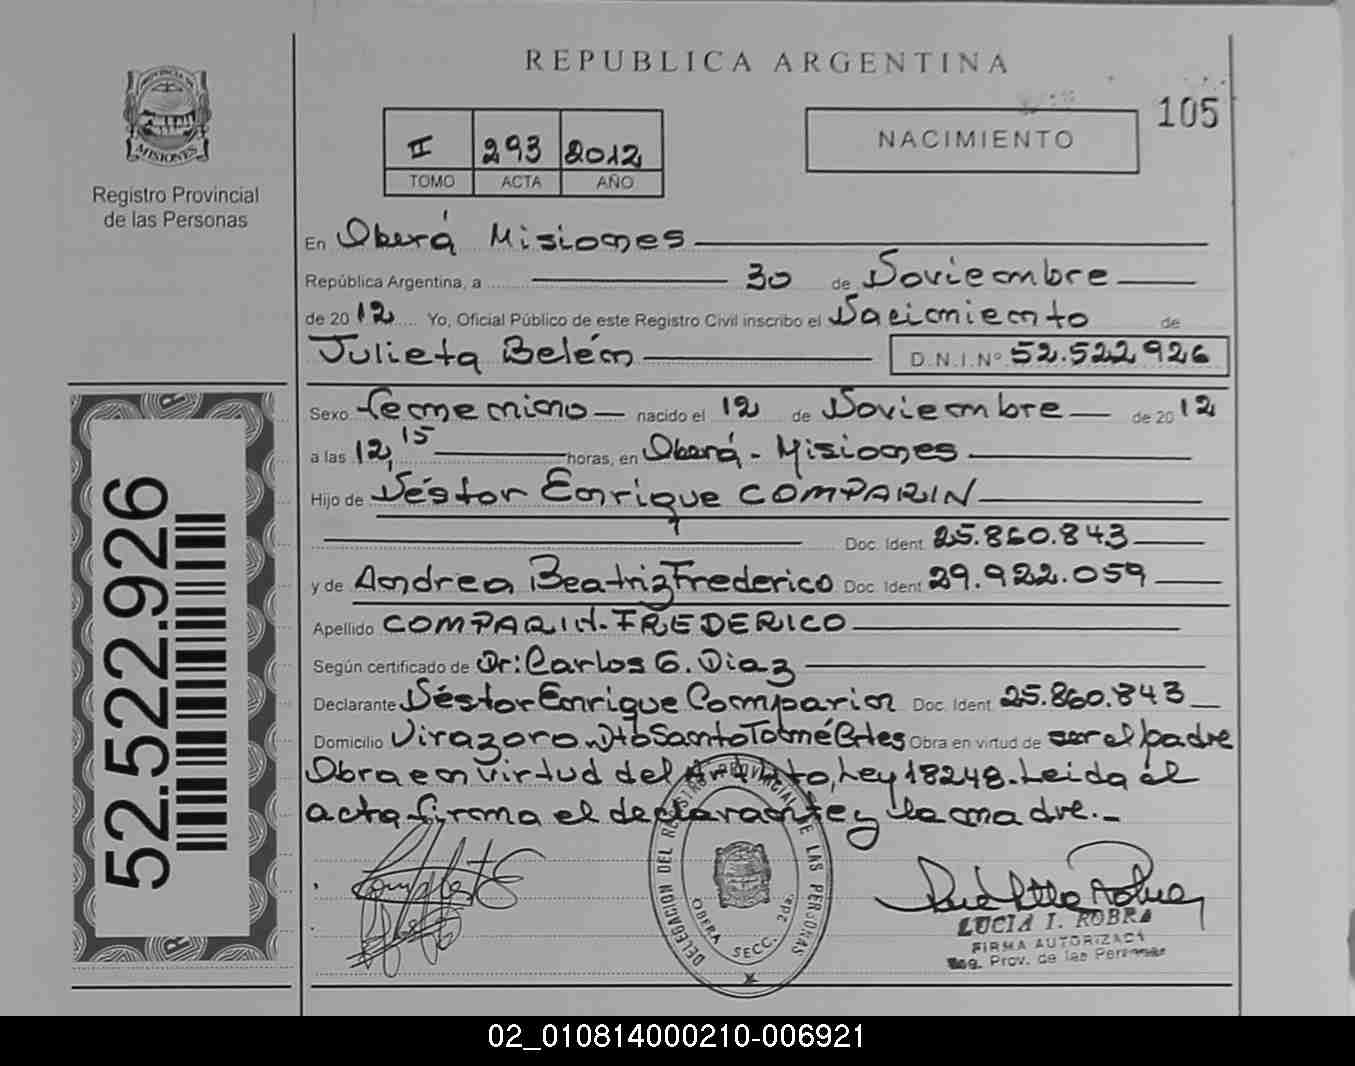 REPUBLICA ARGENTINA
PROVINCIA DE
MISIONES
Registro Provincial
de las Personas
II 293 2012
TOMO ACTA AÑO
NACIMIENTO
105
En Oberá Misiones
República Argentina, a 30 de Noviembre
de 2012 Yo, Oficial Público de este Registro Civil inscribo el Nacimiento de
Julieta Belén D.N.I.Nº 52.522926
Sexo femenino nacido el 12 de Noviembre de 2012
a las 12,15 horas, en Oberá - Misiones
Hijo de Néstor Enrique COMPARIN
Doc. Ident. 25.860.843
y de Andrea Beatriz Frederico Doc. Ident. 29.922.059
Apellido COMPARIN-FREDERICO
Según certificado de Dr: Carlos G. Diaz
Declarante Néstor Enrique Comparin Doc. Ident. 25.860.843
Domicilio Virazoro Dto Santo Tomé Ctes Obra en virtud de ser el padre
Obra en virtud del Ley 18248. Leida el
acta firma el declarante y la madre.-
52.522.926
DELEGACION DEL REGISTRO PROVINCIAL DE LAS PERSONAS
OBERA SECC. 2da.
LUCIA I. ROBRA
FIRMA AUTORIZADA
Reg. Prov. de las Personas
02_010814000210-006921